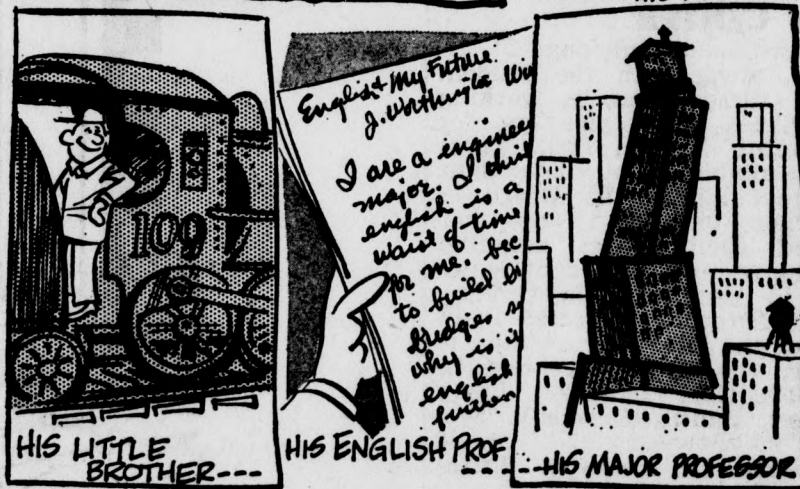 109
HIS LITTLE
BROTHER---
English + My Future
J. Worthington
I are a engineer
major. I think
english is a
waist of time
for me. bec
to build bi
Bridges s
why is i
english
further
HIS ENGLISH PROF -----
--HIS MAJOR PROFESSOR